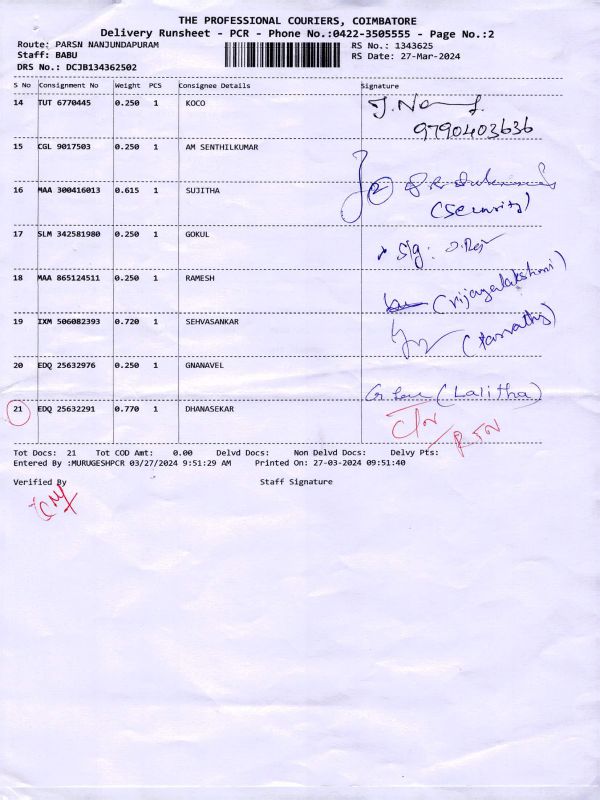 THE PROFESSIONAL COURIERS, COIMBATORE
Delivery Runsheet - PCR - Phone No.:0422-3505555 - Page No.:2
Route: PARSN NANJUNDAPURAM
RS No.: 1343625
Staff: BABU
RS Date: 27-Mar-2024
DRS No.: DCJB134362502
S No Consignment No Weight PCS Consignee Details Signature
14 TUT 6770445 0.250 1 KOCO
9790403636
15 CGL 9017503 0.250 1 AM SENTHILKUMAR
16 MAA 300416013 0.615 1 SUJITHA
(Security)
17 SLM 342581980 0.250 1 GOKUL
Sig:
18 MAA 865124511 0.250 1 RAMESH
(vijayalakshmi)
19 IXM 506082393 0.720 1 SEHVASANKAR
20 EDQ 25632976 0.250 1 GNANAVEL
(Lalitha)
21 EDQ 25632291 0.770 1 DHANASEKAR
Tot Docs: 21 Tot COD Amt: 0.00 Delvd Docs: Non Delvd Docs: Delvy Pts:
Entered By :MURUGESHPCR 03/27/2024 9:51:29 AM Printed On: 27-03-2024 09:51:40
Verified By Staff Signature